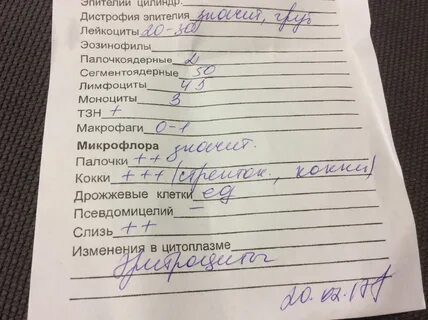 Эпителий цилиндр.
Дистрофия эпителия значит, груб
Лейкоциты 20-30
Эозинофилы
Палочкоядерные 2
Сегментоядерные 50
Лимфоциты 45
Моноциты 3
ТЗН +
Макрофаги 0-1
Микрофлора значит.
Палочки ++
Кокки +++ (стрепток., кокки)
Дрожжевые клетки ед
Псевдомицелий –
Слизь ++
Изменения в цитоплазме
Эритроциты
20.02.17г